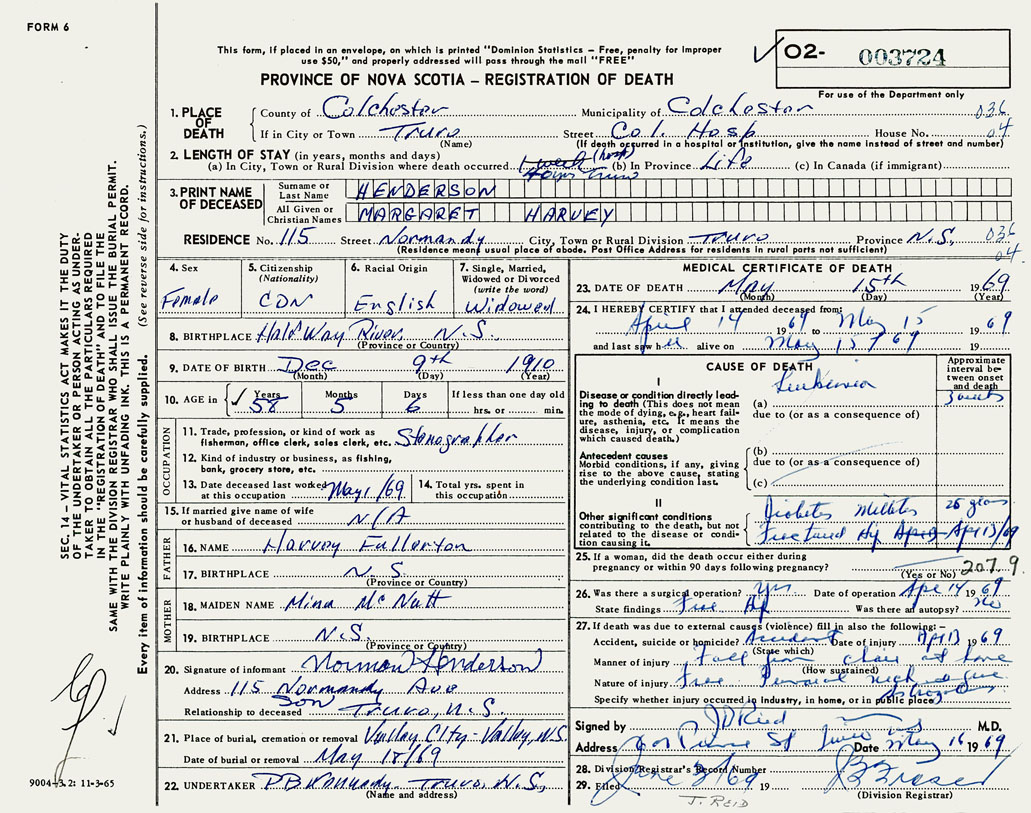 FORM 6
This form, if placed in an envelope, on which is printed "Dominion Statistics – Free, penalty for improper
use $50," and properly addressed will pass through the mail "FREE"
PROVINCE OF NOVA SCOTIA – REGISTRATION OF DEATH
O2- 003724
For use of the Department only
1. PLACE OF DEATH County of Colchester Municipality of Colchester 036
If in City or Town Truro Street Col. Hosp House No. 04
(Name) (If death occurred in a hospital or institution, give the name instead of street and number)
2. LENGTH OF STAY (in years, months and days)
(a) In City, Town or Rural Division where death occurred 1 week (hosp) (b) In Province Life (c) In Canada (if immigrant)
3. PRINT NAME OF DECEASED Surname or Last Name HENDERSON
All Given or Christian Names MARGARET HARVEY
RESIDENCE No. 115 Street Normandy City, Town or Rural Division Truro Province N.S. 036
(Residence means usual place of abode. Post Office Address for residents in rural parts not sufficient) 04
4. Sex Female
5. Citizenship (Nationality) CDN
6. Racial Origin English
7. Single, Married, Widowed or Divorced (write the word) Widowed
8. BIRTHPLACE Half Way River, N.S.
(Province or Country)
9. DATE OF BIRTH Dec 9th 1910
(Month) (Day) (Year)
10. AGE in Years 58 Months 5 Days 6 If less than one day old hrs. or min.
OCCUPATION
11. Trade, profession, or kind of work as
fisherman, office clerk, sales clerk, etc. Stenographer
12. Kind of industry or business, as fishing,
bank, grocery store, etc.
13. Date deceased last worked at this occupation May 1/69
14. Total yrs. spent in this occupation
15. If married give name of wife
or husband of deceased N/A
FATHER
16. NAME Harvey Fullerton
17. BIRTHPLACE N.S.
(Province or Country)
MOTHER
18. MAIDEN NAME Mina McNutt
19. BIRTHPLACE N.S.
(Province or Country)
20. Signature of informant Norman Henderson
Address 115 Normandy Ave
Relationship to deceased Son Truro, N.S.
21. Place of burial, cremation or removal Valley City - Valley, N.S.
Date of burial or removal May 18/69
22. UNDERTAKER Truro, N.S.,
(Name and address)
MEDICAL CERTIFICATE OF DEATH
23. DATE OF DEATH May 15th 1969
(Month) (Day) (Year)
24. I HEREBY CERTIFY that I attended deceased from:
April 14 1969 to May 15 1969
and last saw her alive on May 15 69 19
CAUSE OF DEATH
Approximate interval between onset and death
I
Disease or condition directly leading to death (This does not mean
the mode of dying, e.g., heart failure, asthenia, etc. It means the
disease, injury, or complication
which caused death.)
(a) Leukemia 3 weeks
due to (or as a consequence of)
Antecedent causes
Morbid conditions, if any, giving
rise to the above cause, stating
the underlying condition last.
(b)
due to (or as a consequence of)
(c)
II
Other significant conditions
contributing to the death, but not
related to the disease or condition causing it.
Diabetes Mellitus 25 years
Fractured Hip Apr 13/69
25. If a woman, did the death occur either during
pregnancy or within 90 days following pregnancy?
(Yes or No) 207.9
26. Was there a surgical operation? yes Date of operation Apr 14 1969
State findings Frac Hip Was there an autopsy? no
27. If death was due to external causes (violence) fill in also the following: –
Accident, suicide or homicide? Accident Date of injury Apr 13 1969
(State which)
Manner of injury Fall from chair at home
(How sustained)
Nature of injury Frac Femoral neck
Specify whether injury occurred in industry, in home, or in public place
Signed by J D Reid M.D.
Address Prince St Truro Date May 16 1969
28. Division Registrar's Record Number
29. Filed June 3/69 19
(Division Registrar)
J. REID
SEC. 14 – VITAL STATISTICS ACT MAKES IT THE DUTY
OF THE UNDERTAKER OR PERSON ACTING AS UNDERTAKER TO OBTAIN ALL THE PARTICULARS REQUIRED
IN THE "REGISTRATION OF DEATH" AND TO FILE THE
SAME WITH THE DIVISION REGISTRAR WHO SHALL ISSUE THE BURIAL PERMIT.
WRITE PLAINLY WITH UNFADING INK. THIS IS A PERMANENT RECORD.
Every item of information should be carefully supplied. (See reverse side for instructions.)
9004-3.2: 11-3-65